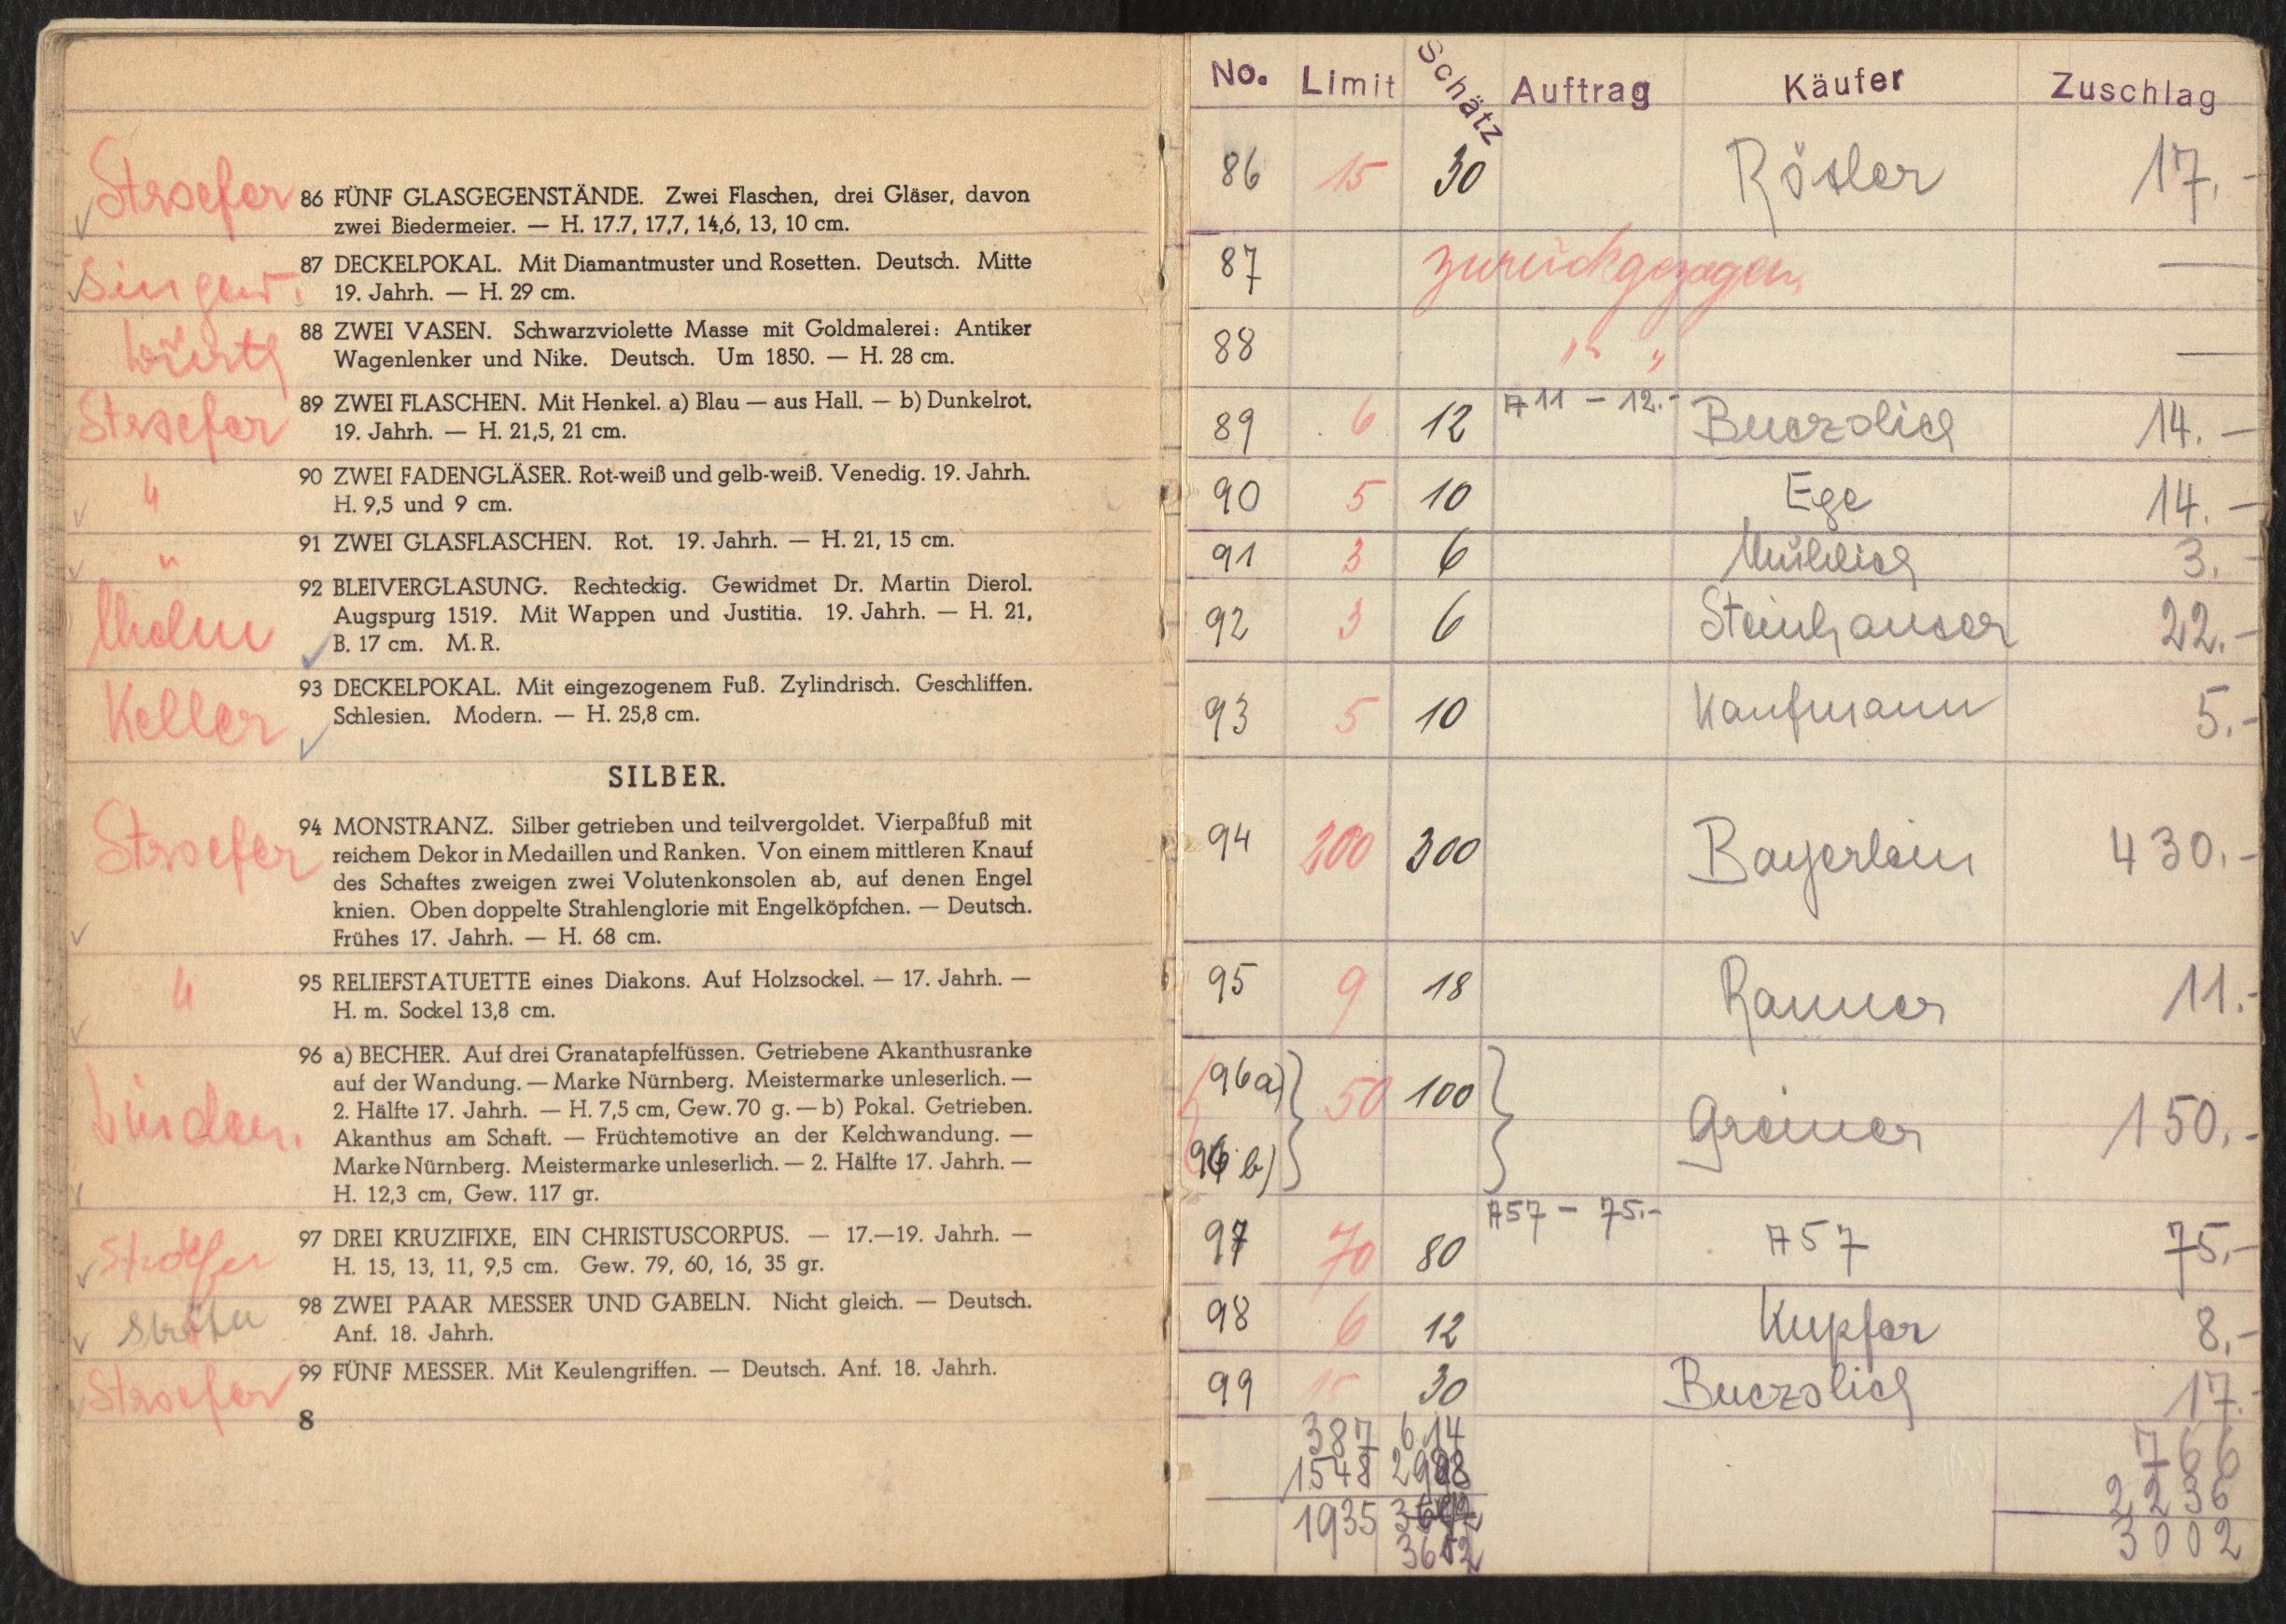 Stroefer
86 FÜNF GLASGEGENSTÄNDE. Zwei Flaschen, drei Gläser, davon
zwei Biedermeier. — H. 17.7, 17,7, 14,6, 13, 10 cm.
87 DECKELPOKAL. Mit Diamantmuster und Rosetten. Deutsch. Mitte
19. Jahrh. — H. 29 cm.
88 ZWEI VASEN. Schwarzviolette Masse mit Goldmalerei: Antiker
Wagenlenker und Nike. Deutsch. Um 1850. — H. 28 cm.
Stroefer
89 ZWEI FLASCHEN. Mit Henkel. a) Blau — aus Hall. — b) Dunkelrot.
19. Jahrh. — H. 21,5, 21 cm.
"
90 ZWEI FADENGLÄSER. Rot-weiß und gelb-weiß. Venedig. 19. Jahrh.
H. 9,5 und 9 cm.
"
91 ZWEI GLASFLASCHEN. Rot. 19. Jahrh. — H. 21, 15 cm.
92 BLEIVERGLASUNG. Rechteckig. Gewidmet Dr. Martin Dierol.
Augspurg 1519. Mit Wappen und Justitia. 19. Jahrh. — H. 21,
B. 17 cm. M. R.
Keller
93 DECKELPOKAL. Mit eingezogenem Fuß. Zylindrisch. Geschliffen.
Schlesien. Modern. — H. 25,8 cm.
SILBER.
Stroefer
94 MONSTRANZ. Silber getrieben und teilvergoldet. Vierpaßfuß mit
reichem Dekor in Medaillen und Ranken. Von einem mittleren Knauf
des Schaftes zweigen zwei Volutenkonsolen ab, auf denen Engel
knien. Oben doppelte Strahlenglorie mit Engelköpfchen. — Deutsch.
Frühes 17. Jahrh. — H. 68 cm.
"
95 RELIEFSTATUETTE eines Diakons. Auf Holzsockel. — 17. Jahrh. —
H. m. Sockel 13,8 cm.
96 a) BECHER. Auf drei Granatapfelfüssen. Getriebene Akanthusranke
auf der Wandung. — Marke Nürnberg. Meistermarke unleserlich. —
2. Hälfte 17. Jahrh. — H. 7,5 cm, Gew. 70 g. — b) Pokal. Getrieben.
Akanthus am Schaft. — Früchtemotive an der Kelchwandung. —
Marke Nürnberg. Meistermarke unleserlich. — 2. Hälfte 17. Jahrh. —
H. 12,3 cm, Gew. 117 gr.
97 DREI KRUZIFIXE, EIN CHRISTUSCORPUS. — 17.—19. Jahrh. —
H. 15, 13, 11, 9,5 cm. Gew. 79, 60, 16, 35 gr.
98 ZWEI PAAR MESSER UND GABELN. Nicht gleich. — Deutsch.
Anf. 18. Jahrh.
Stroefer
99 FÜNF MESSER. Mit Keulengriffen. — Deutsch. Anf. 18. Jahrh.
8
No. Limit Schätz Auftrag Käufer Zuschlag
86 15 30 Rösler 17.-
87 zurückgezogen —
88 " " —
89 6 12 A11 - 12.- Buczolich 14.—
90 5 10 Ege 14.—
91 3 6 3.-
92 3 6 Steinhauser 22.-
93 5 10 Kaufmann 5.-
94 200 300 Bayerlein 430.-
95 9 18 Ranner 11.-
96a) 50 100 Greiner 150.-
96 b)
97 70 80 A57 - 75.- A57 75.-
98 6 12 Kupfer 8.-
99 15 30 Buczolich 17.-
387 614 766
1548 2236
1935 3002